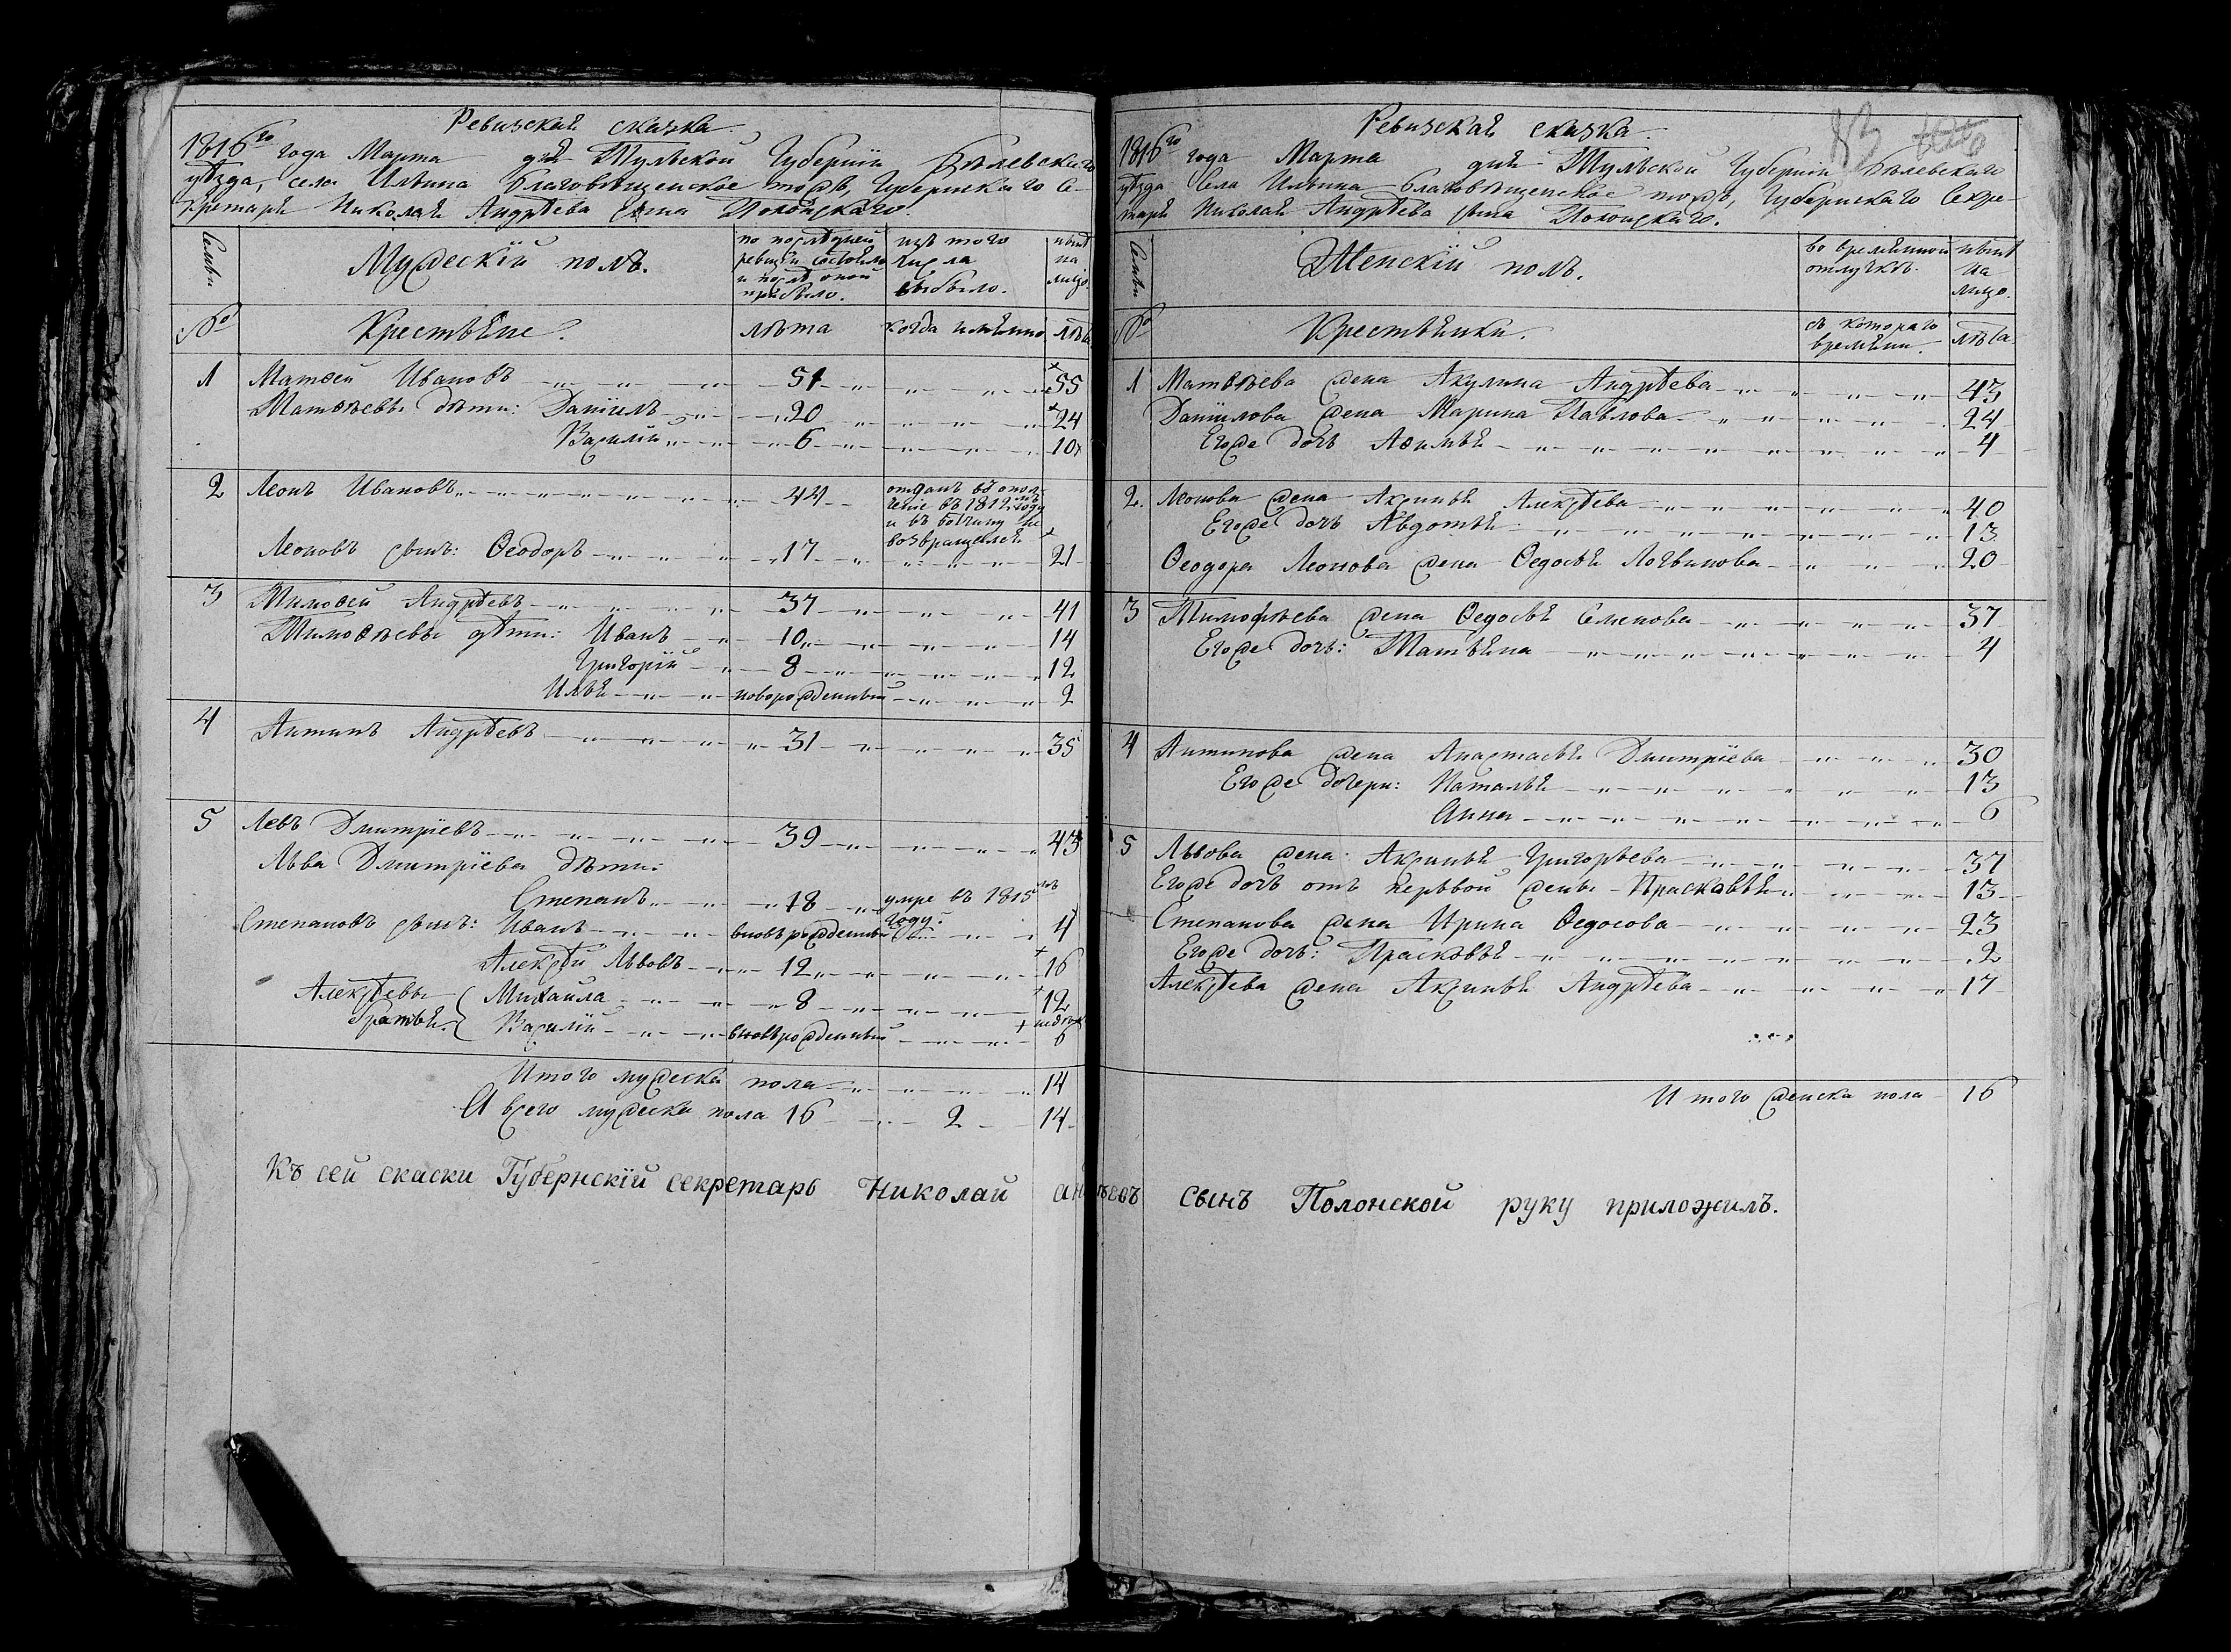 Ревизская сказка.
1816го года Марта дня Тульской Губернiи Бѣлевскаго
уѣзда, села Ильина Благовѣщенское тожъ, Губернскаго Се-
кретаря Николая Андрѣева сына Полонскаго.
Семьи
Мужескiй полъ.
по послѣдней
ревизiи состояло
и послѣ оной
прибыло.
изъ того
числа
выбыло.
нынѣ
на
лицо.
№
Крестьяне.
лѣта
когда имянно
лѣта
1 Матвей Ивановъ 51 55
Матвѣевы дѣти: Данiилъ 20 24
Василiй 6 10
2 Леонъ Ивановъ 44 отданъ въ опол-
ченiе въ 1812мъ году
и въ вотчину не
возвращался
Леоновъ сынъ: Ѳеодоръ 17 21
3 Тимоѳей Андрѣевъ 37 41
Тимоѳѣевы дѣти: Иванъ 10 14
Григорiй 8 12
Илья новорожденный 2
4 Антипъ Андрѣевъ 31 35
5 Левъ Дмитрiевъ 39 43
Льва Дмитрiева дѣти:
Степанъ 18 умре въ 1815мъ
году.
Степановъ сынъ: Иванъ вновьрожденный 4
Алексѣй Львовъ 12 16
Алексѣевы братья { Михаила 8 12
Василiй вновьрожденный недѣль 6
Итого мужеска пола 14
А всего мужеска пола 16 2 14
Къ сей скаски Губернскiй секретарь Николай
Ревизская сказка.
83
1816го года Марта дня Тульской Губернiи Бѣлевскаго
уѣзда Села Ильина Благовѣщенское тожъ, Губернскаго Секре-
таря Николая Андрѣева сына Полонскаго.
Семьи
Женскiй полъ.
во временной
отлучкѣ.
нынѣ
на
лицо.
№
Крестьянки.
съ котораго
времяни.
лѣта
1 Матвѣева жена Акулина Андрѣева 43
Данiилова жена Марина Павлова 24
Егоже дочь Аѳимья 4
2. Леонова жена Аксинья Алексѣева 40
Егоже дочь Авдотья 13
Ѳеодора Леонова жена Ѳедосья Логвинова 20
3 Тимофѣева жена Ѳедосья Семенова 37
Егоже дочь: Татьяна 4
4 Антипова жена Анастасья Дмитрiева 30
Егоже дочери: Наталья 13
Анна 6
5 Львова жена Аксинья Григорьева 37
Егоже дочь отъ первой жены Прасковья 13
Степанова жена Ирина Ѳедосова 23
Егоже дочь: Прасковья 2
Алексѣева жена Аксинья Андрѣева 17
Итого женска пола 16
сынъ Полонской руку приложилъ.